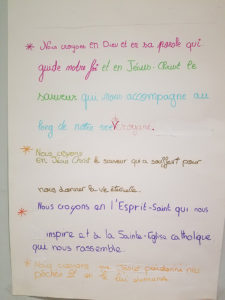 * Nous croyons en Dieu et en sa parole qui
guide notre foi et en Jésus-Christ le
sauveur qui nous accompagne au
long de notre vie croyons.
* Nous croyons
en Jésus Christ le sauveur qui a souffert pour
nous donner la vie éternelle.
* Nous croyons en l'Esprit-Saint qui nous
inspire et à la Sainte-Eglise catholique
qui nous rassemble.
* Nous croyons en Jésus pardonne nos
péchés et